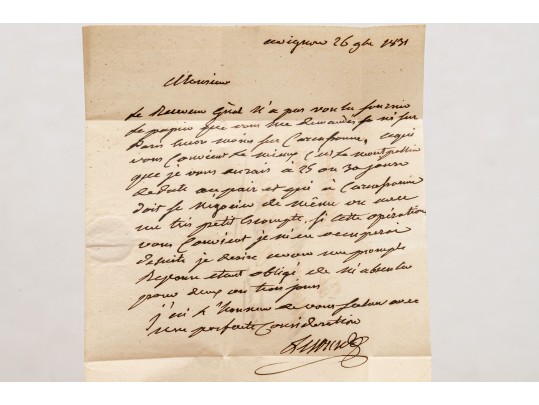 avignon 26 9bre 1831
Monsieur
Le Receveur Gnal n'a pas voulu fournir
le papier que vous me demandés ni sur
Paris moins sur Carcassonne, ce qui
vous convient le mieux c'est le montpellier
que je vous aurais à 25 ou 30 jours
de date au pair et qui à Carcassonne
doit se négocier de même ou avec
un très petit Escompte. Si cette opération
vous convient je m'en occuperai
de suite, je désire avoir une prompte
Réponse étant obligé de m'absenter
pour deux ou trois jours
j'ai l'honneur de vous saluer avec
une parfaite Considération